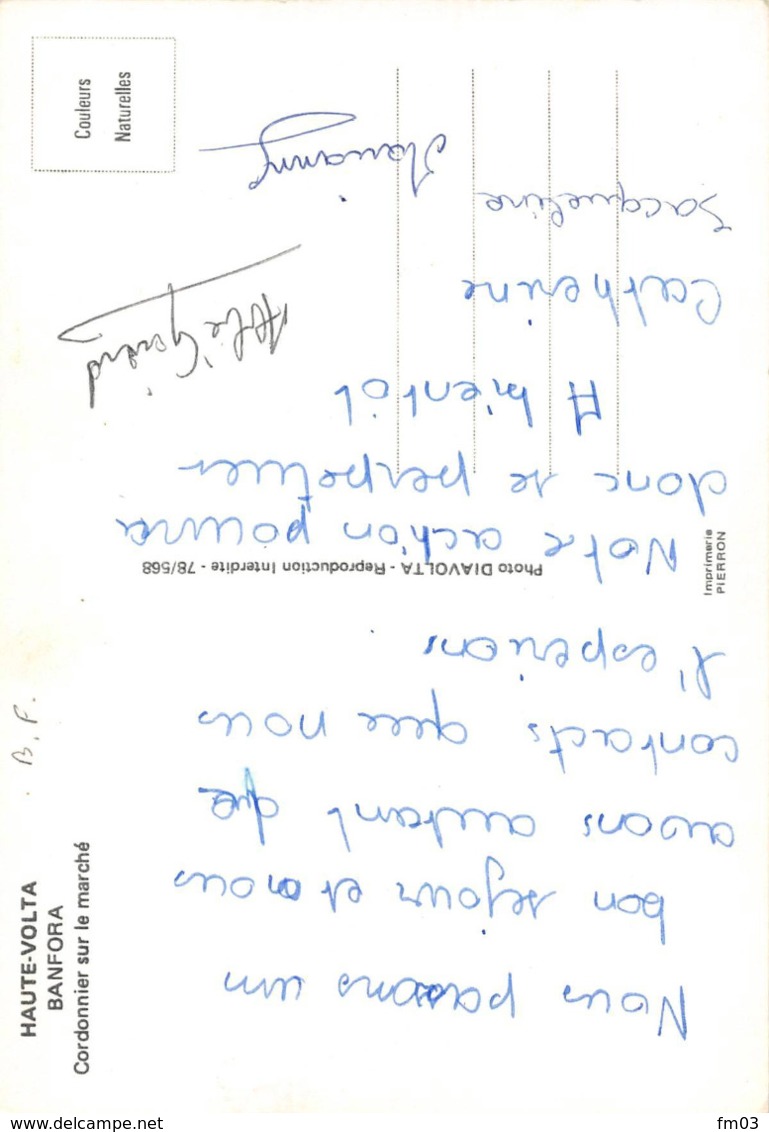 HAUTE-VOLTA
BANFORA
Cordonnier sur le marché
B.F.
Couleurs
Naturelles
Photo DIAVOLTA - Reproduction Interdite - 78/568
Imprimerie
PIERRON
Nous passons um
bon sejour et nous
avons autant que
contacts quee nous
l'esperions
Notre action pourra
donc se perpetuer
A bientôt
Catherine
Jacqueline
Marianne
delcampe.net
fm03